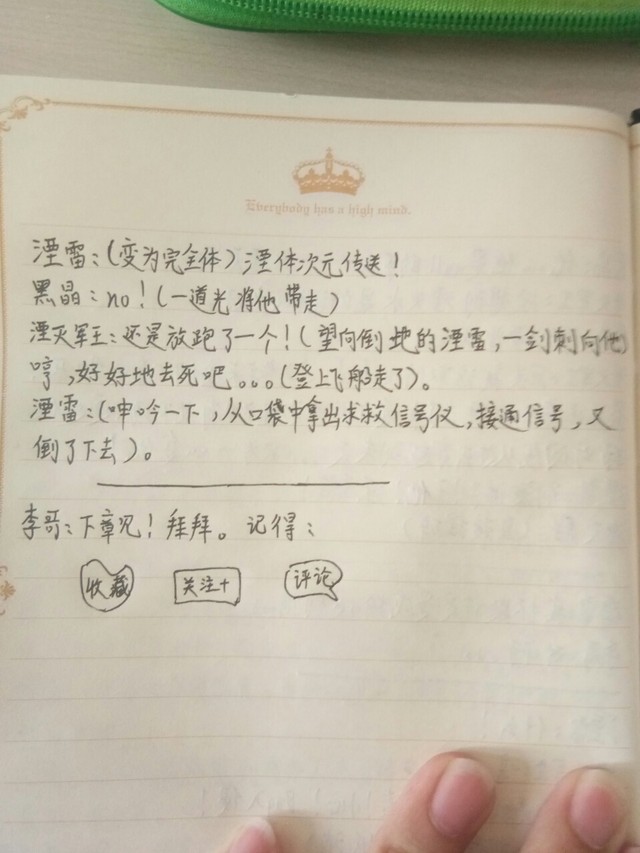 Everybody has a high mind.
湮雷:(变为完全体)湮体次元传送!
黑晶:no!(一道光将他带走)
湮灭军王:还是放跑了一个!(望向倒地的湮雷,一剑刺向他)
哼,好好地去死吧。。。(登上飞船走了)。
湮雷:(呻吟一下,从口袋中拿出求救信号仪,接通信号,又
倒了下去)。
李哥:下章见!拜拜。记得:
收藏 关注+ 评论